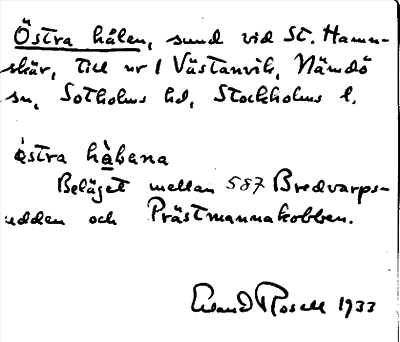 Östra hålen, sund vid St. Hamn-
skär, till nr 1 Västanvik, Nämdö
sn, Sotholms hd, Stockholms l.
östra hàbena
Beläget mellan 587 Bredvarps-
udden och Prästmannakobben.
Erland Rosell 1933